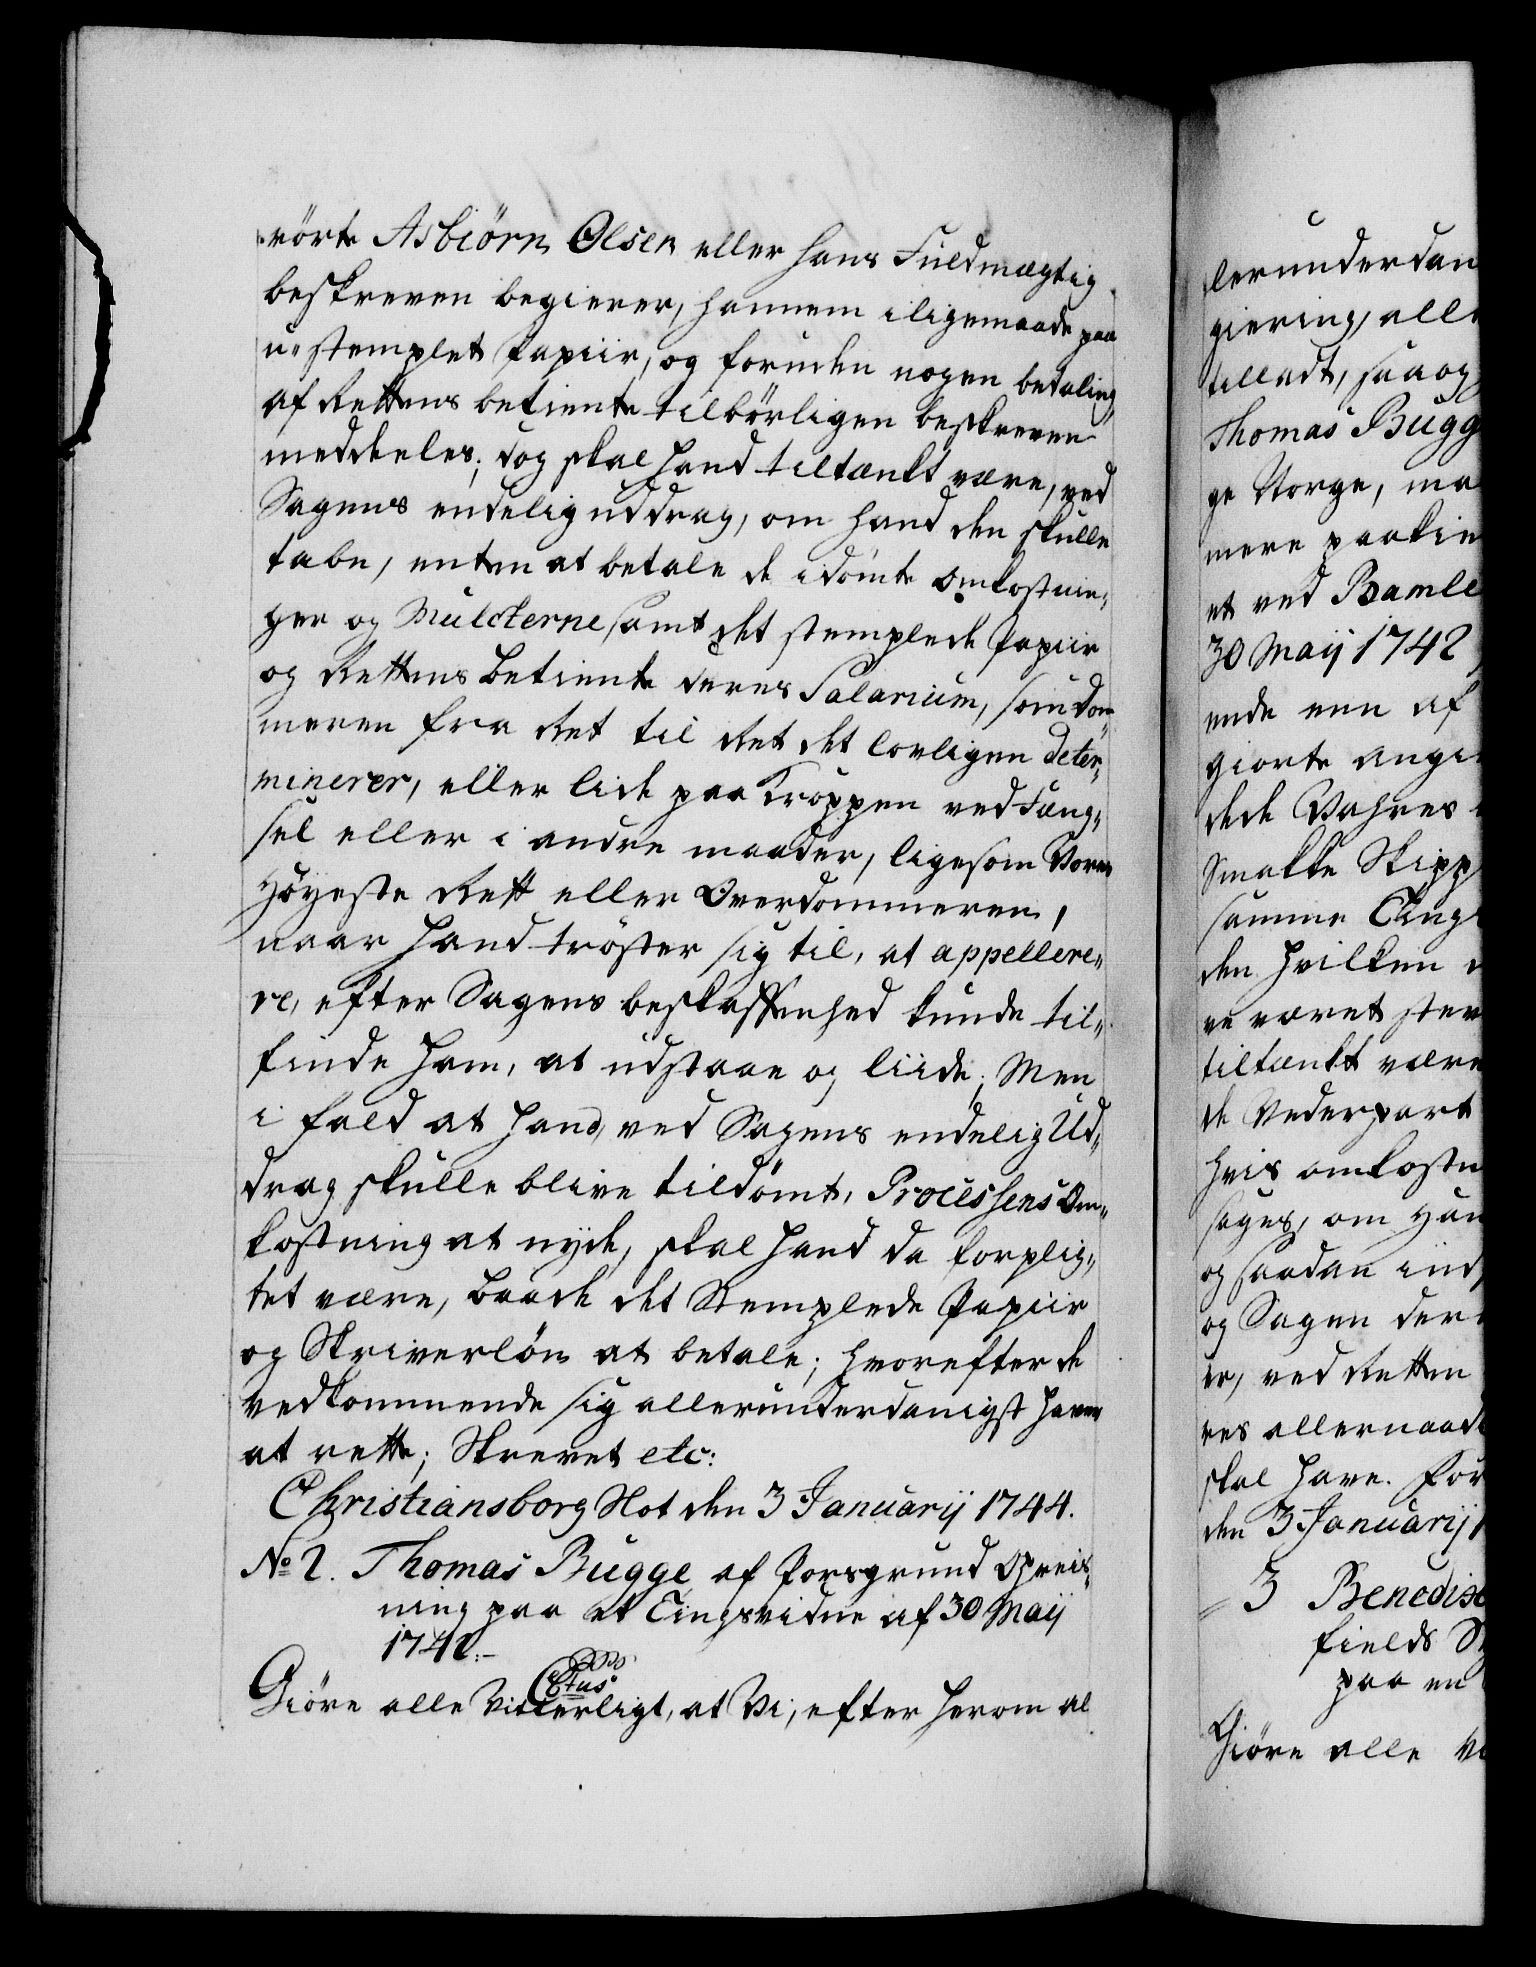 rörte Asbiörn Olsen eller hans Fuldmægtig
beskreven begierer, hannem iligemaade paa
u-stemplet Papiir, og foruden nogen betaling
af Rettens betiente tilbörligen beskreven
meddeeles; dog skal hand tiltænkt være, ved
Sagens endelig uddrag, om hand den skulle
tabe, enten at betale de idömte Omkostnin-
ger og Mulcterne, samt det stemplede Papiir
og Rettens Betiente deres Salarium, som Dom-
meren fra Ret til Ret det lovligen deter-
minerer, eller lide paa Kroppen ved Fæng-
sel eller i andre maader, ligesom Vores
Höyeste Rett eller Overdommeren,
naar Hand tröster sig til, at appellere-
re, efter Sagens beskaffenhed kunde til-
finde ham, at udstaae og liide; Men
i fald at Hand, ved Sagens endelig Ud-
drag skulle blive tildömt, Processens Om-
kostning at nyde, skal Hand da forplig-
tet være, baade det Stemplede Papiir
og Skriverlön at betale; hvorefter de
vedkommende sig allerunderdanigst haver
at rette; Skrevet etc:
Christiansborg Slot den 3 Januarij 1744.
No 2. Thomas Bugge af Porsgrund Opreis-
ning paa et Tingsvidne af 30 Maij
1742.-
C6tus
Giöre alle Vitterligt, at Vi, efter herom al
lerunderdan
giering, alle
tilladt, saa og
Thomas Bugg
ge Norge, ma
mere paakie
et ved Bamle
30 Maij 1742
ende een af
giorte angi
dede Vahres
Smakke Skipp
samme Ting
den hvilken
ve været stev
tiltænkt være
de Vederpart
hvis omkostn
sages, om Han
og saadan ind
og Sagen der
er, ved Retten
res allernaad
skal have. For
den 3 Januarij 1
3 Benedict
fields
paa en
Giöre alle Vi